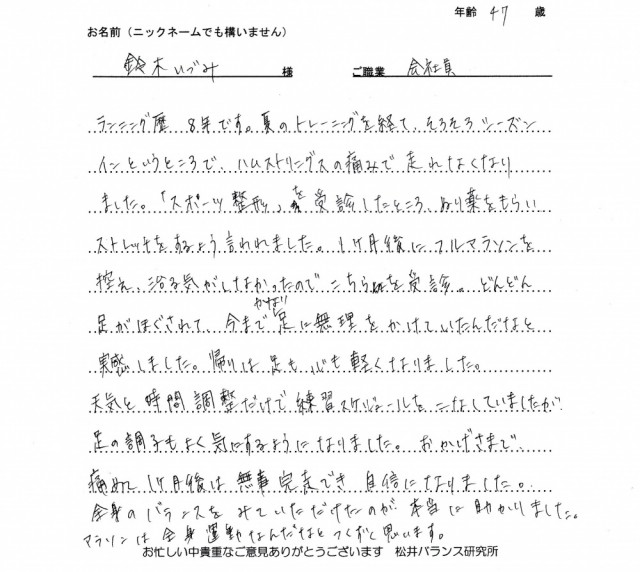 年齢 47 歳
お名前（ニックネームでも構いません）
鈴木いづみ 様 ご職業 会社員
ランニング歴 8年です。夏のトレーニングを経て、そろそろシーズン
インというところで、ハムストリングスの痛みで走れなくなり
ました。「スポーツ整形」を受診したところ、ぬり薬をもらい
ストレッチをするよう言われました。1ヶ月後にフルマラソンを
控え、治る気がしなかったのでこちらを受診。どんどん
足がほぐされて、今までかなり足に無理をかけていたんだなと
実感しました。帰りは足も心も軽くなりました。
天気と時間調整だけで練習スケジュールをこなしていましたが
足の調子もよく気にするようになりました。おかげさまで
痛めて1ヶ月後は無事完走でき自信になりました。
全身のバランスをみていただけたのが本当に助かりました。
マラソンは全身運動なんだなとつくづく思います。
お忙しい中貴重なご意見ありがとうございます 松井バランス研究所